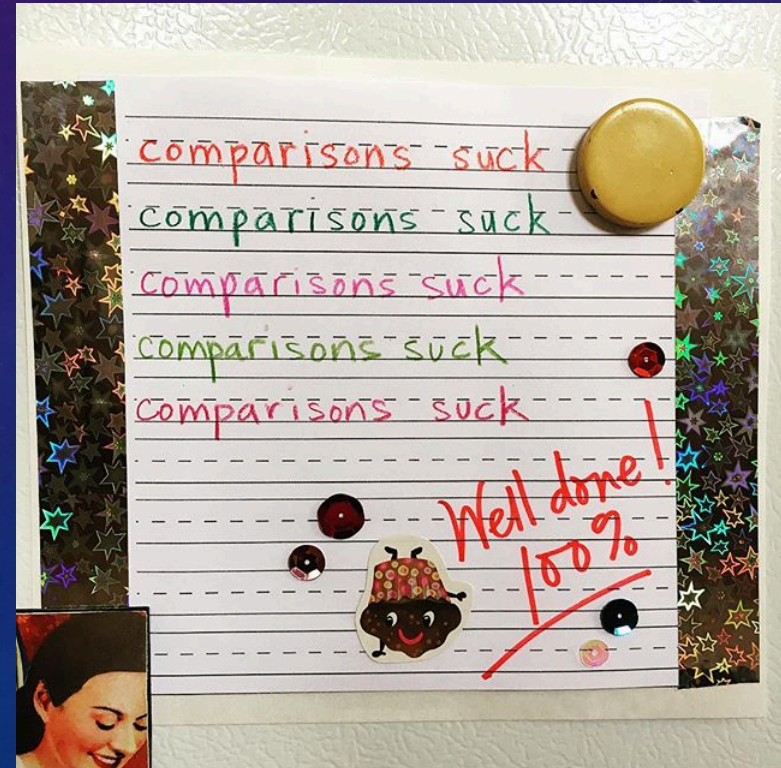 comparisons suck
comparisons suck
comparisons suck
comparisons suck
comparisons suck
Well done!
100%